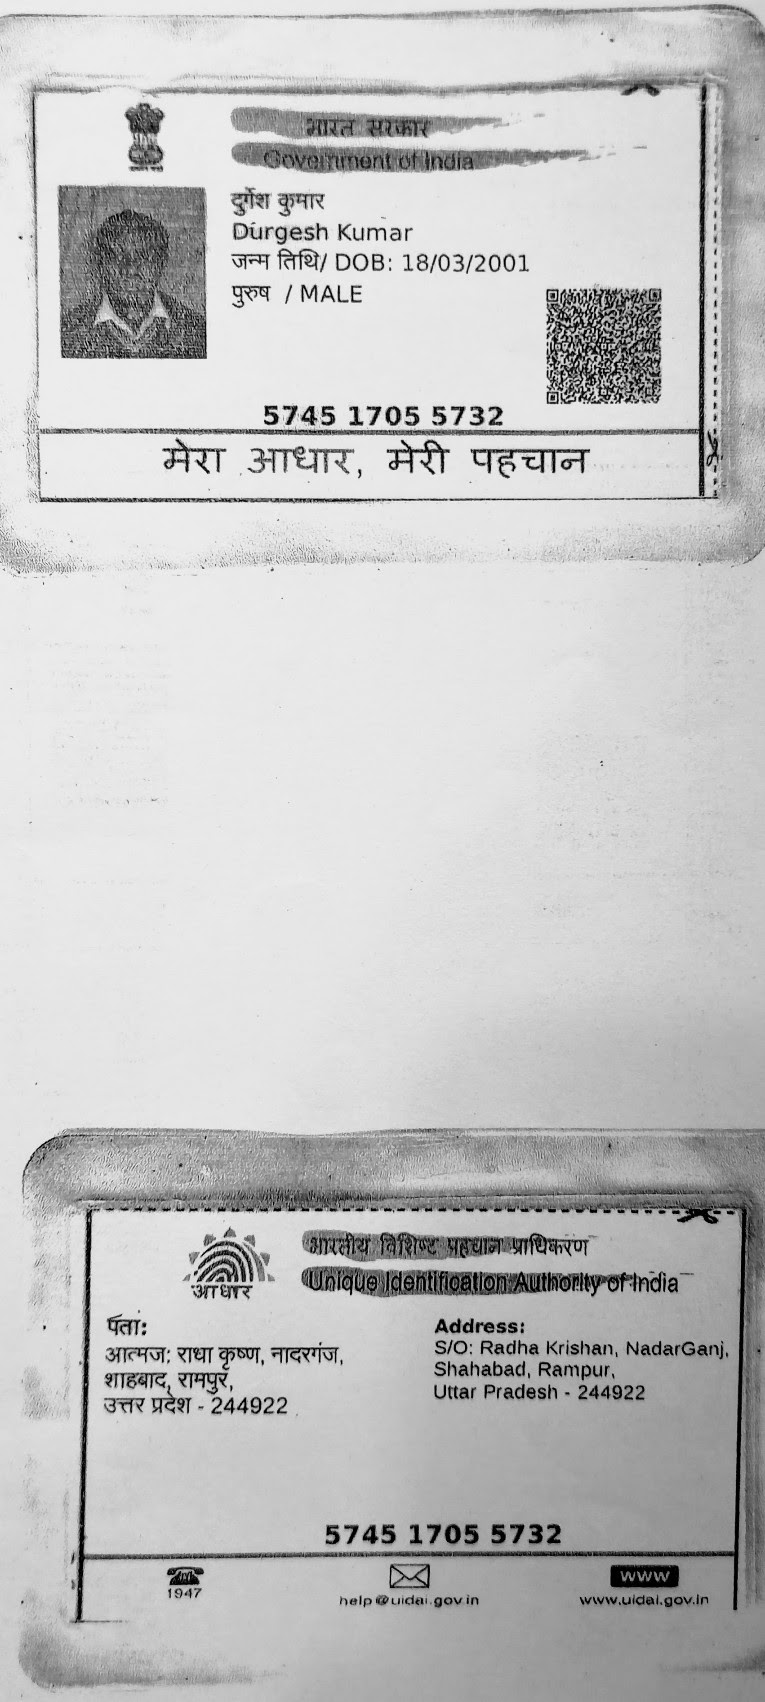 भारत सरकार
Government of India
दुर्गेश कुमार
Durgesh Kumar
जन्म तिथि/ DOB: 18/03/2001
पुरुष / MALE
5745 1705 5732
मेरा आधार, मेरी पहचान
भारतीय विशिष्ट पहचान प्राधिकरण
Unique Identification Authority of India
आधार
पता:
आत्मज: राधा कृष्ण, नादरगंज,
शाहबाद, रामपुर,
उत्तर प्रदेश - 244922
Address:
S/O: Radha Krishan, NadarGanj,
Shahabad, Rampur,
Uttar Pradesh - 244922
5745 1705 5732
1947
help@uidai.gov.in
www
www.uidai.gov.in